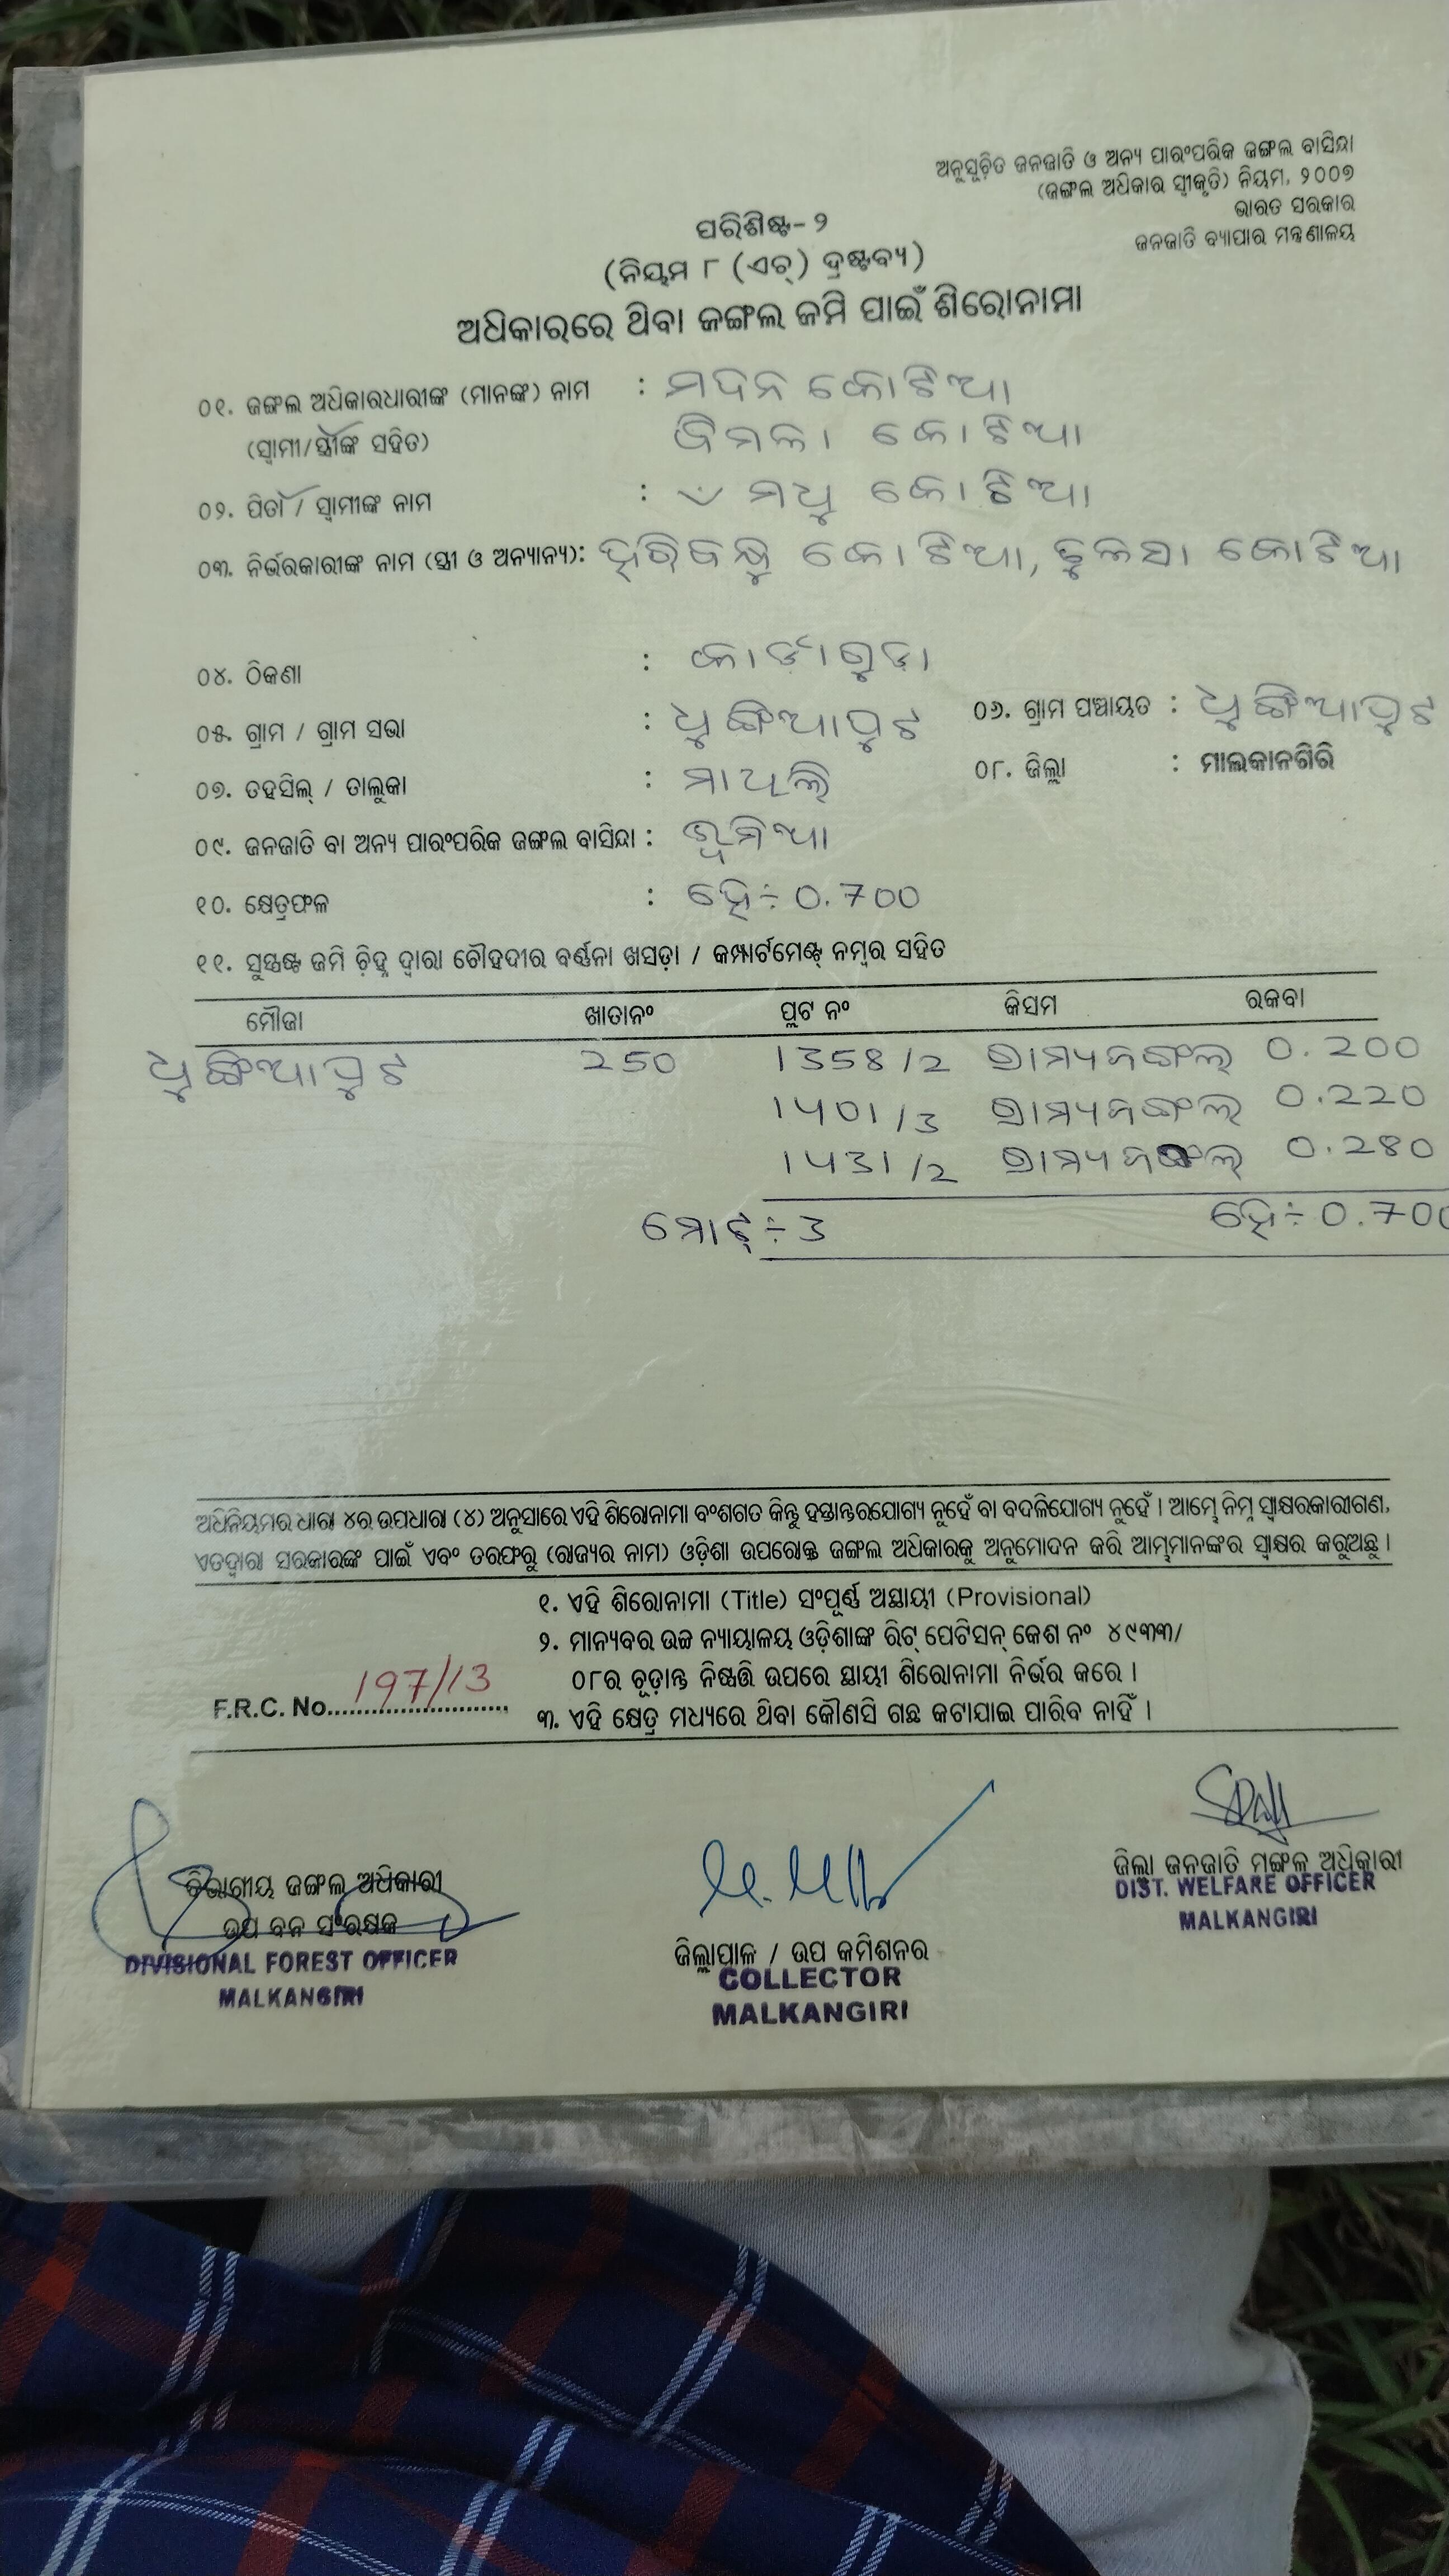 ଅନୁସୂଚିତ ଜନଜାତି ଓ ଅନ୍ୟ ପାରଂପରିକ ଜଙ୍ଗଲ ବାସିନ୍ଦା
(ଜଙ୍ଗଲ ଅଧିକାର ସ୍ୱୀକୃତି) ନିୟମ, ୨୦୦୭
ଭାରତ ସରକାର
ଜନଜାତି ବ୍ୟାପାର ମନ୍ତ୍ରଣାଳୟ
ପରିଶିଷ୍ଟ- ୨
(ନିୟମ ୮ (ଏଚ୍) ଦ୍ରଷ୍ଟବ୍ୟ)
ଅଧିକାରରେ ଥିବା ଜଙ୍ଗଲ ଜମି ପାଇଁ ଶିରୋନାମା
୦୧. ଜଙ୍ଗଲ ଅଧିକାରଧାରୀଙ୍କ (ମାନଙ୍କ) ନାମ : ମଦନ କୋଟିଆ
(ସ୍ୱାମୀ/ସ୍ତ୍ରୀଙ୍କ ସହିତ) ବିମଳା କୋଟିଆ
୦୨. ପିତା / ସ୍ୱାମୀଙ୍କ ନାମ : ମଧୁ କୋଟିଆ
୦୩. ନିର୍ଭରକାରୀଙ୍କ ନାମ (ସ୍ତ୍ରୀ ଓ ଅନ୍ୟାନ୍ୟ): ହରିବନ୍ଧୁ କୋଟିଆ, ତୁଳସା କୋଟିଆ
୦୪. ଠିକଣା :
୦୫. ଗ୍ରାମ / ଗ୍ରାମ ସଭା : ଧୁଙ୍ଗିଆପୁଟ ୦୬. ଗ୍ରାମ ପଞ୍ଚାୟତ : ଧୁଙ୍ଗିଆପୁଟ
୦୭. ତହସିଲ୍ / ତାଲୁକା : ମାଥିଲି ୦୮. ଜିଲ୍ଲା : ମାଲକାନଗିରି
୦୯. ଜନଜାତି ବା ଅନ୍ୟ ପାରଂପରିକ ଜଙ୍ଗଲ ବାସିନ୍ଦା : ଭୂମିଆ
୧୦. କ୍ଷେତ୍ରଫଳ : ହେ÷ 0.700
୧୧. ସୁସ୍ପଷ୍ଟ ଜମି ଚିହ୍ନ ଦ୍ୱାରା ଚୌହଦୀର ବର୍ଣ୍ଣନା ଖସଡ଼ା / କମ୍ପାର୍ଟମେଣ୍ଟ୍ ନମ୍ବର ସହିତ
ମୌଜା ଖାତାନଂ ପ୍ଲଟ ନଂ କିସମ ରକବା
ଧୁଙ୍ଗିଆପୁଟ 250 1358/2 ଗ୍ରାମ୍ୟଜଙ୍ଗଲ୍ 0.200
1401/3 ଗ୍ରାମ୍ୟଜଙ୍ଗଲ୍ 0.220
1431/2 ଗ୍ରାମ୍ୟଜଙ୍ଗଲ୍ 0.280
ମୋଟ୍ ÷ 3 ହେ÷ 0.700
ଅଧିନିୟମର ଧାରା ୪ର ଉପଧାରା (୪) ଅନୁସାରେ ଏହି ଶିରୋନାମା ବଂଶଗତ କିନ୍ତୁ ହସ୍ତାନ୍ତରଯୋଗ୍ୟ ନୁହେଁ ବା ବଦଳିଯୋଗ୍ୟ ନୁହେଁ । ଆମ୍ଭେ ନିମ୍ନ ସ୍ୱାକ୍ଷରକାରୀଗଣ,
ଏତଦ୍ୱାରା ସରକାରଙ୍କ ପାଇଁ ଏବଂ ତରଫରୁ (ରାଜ୍ୟର ନାମ) ଓଡ଼ିଶା ଉପରୋକ୍ତ ଜଙ୍ଗଲ ଅଧିକାରକୁ ଅନୁମୋଦନ କରି ଆମ୍ଭମାନଙ୍କର ସ୍ୱାକ୍ଷର କରୁଅଛୁ ।
୧. ଏହି ଶିରୋନାମା (Title) ସଂପୂର୍ଣ୍ଣ ଅସ୍ଥାୟୀ (Provisional)
୨. ମାନ୍ୟବର ଉଚ୍ଚ ନ୍ୟାୟାଳୟ ଓଡ଼ିଶାଙ୍କ ରିଟ୍ ପେଟିସନ୍ କେଶ ନଂ ୪୯୩୩/
୦୮ର ଚୂଡ଼ାନ୍ତ ନିଷ୍ପତ୍ତି ଉପରେ ସ୍ଥାୟୀ ଶିରୋନାମା ନିର୍ଭର କରେ ।
F.R.C. No. 197/13
୩. ଏହି କ୍ଷେତ୍ର ମଧ୍ୟରେ ଥିବା କୌଣସି ଗଛ କଟାଯାଇ ପାରିବ ନାହିଁ ।
ବିଭାଗୀୟ ଜଙ୍ଗଲ ଅଧିକାରୀ
ଉପ ବନ ସଂରକ୍ଷକ
DIVISIONAL FOREST OFFICER
MALKANGIRI
ଜିଲ୍ଲାପାଳ / ଉପ କମିଶନର
COLLECTOR
MALKANGIRI
ଜିଲ୍ଲା ଜନଜାତି ମଙ୍ଗଳ ଅଧିକାରୀ
DIST. WELFARE OFFICER
MALKANGIRI